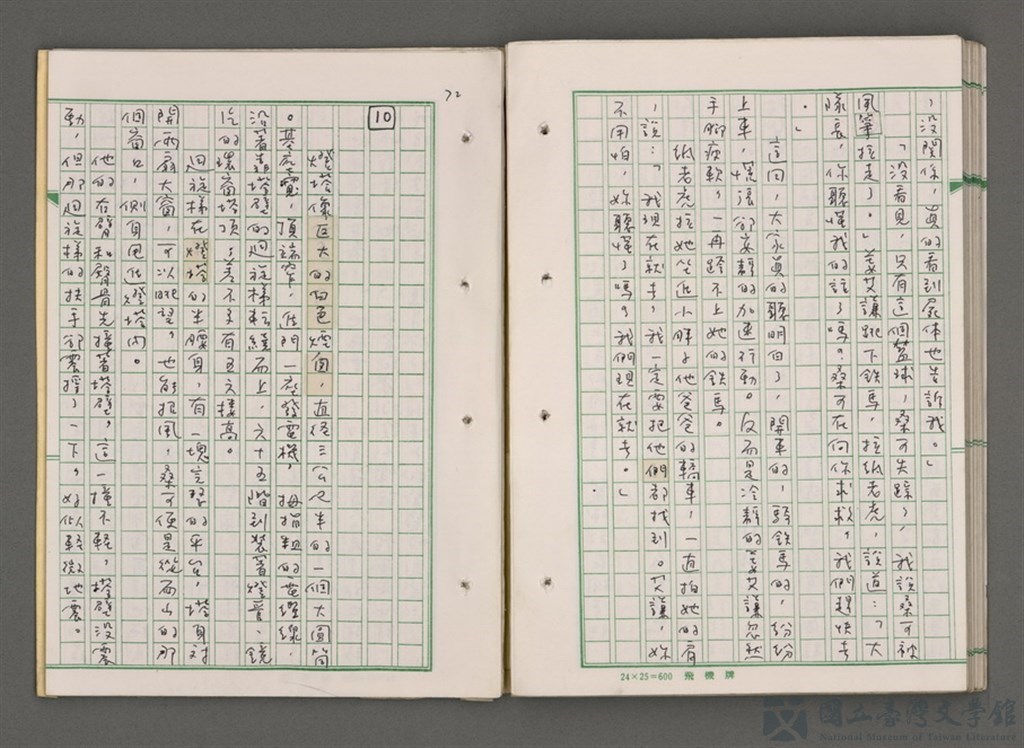 ，沒關係，真的看到屍体也告訴我。」
「沒看見，只有這個籃球，桑可失踪了，我說桑可被
風箏拉走了。」姜艾謙跳下鉄馬，拉紙老虎，說道：「大
隊長，你聽懂我的話了嗎？桑可在向你求救，我們趕快去
。」
這回，大家真的聽明白了，開車的，騎鉄馬的，紛紛
上車，慌張卻安靜的加速行動。反而是冷靜的姜艾謙忽然
手腳痠軟，一再跨不上她的鉄馬。
紙老虎拉她坐進小胖子他爸爸的轎車，一直拍她的肩
，說：「我現在就去，我一定要把他們都找到。艾謙，妳
不用怕，妳聽懂了嗎？我們現在就去。」
24×25=600 飛機牌
72
10
燈塔像巨大的白色煙囪，直徑三公尺半的一個大圓筒
。基座寬，頂端窄，進門一座發電機，拇指粗的電纜線，
沿著塔壁的迴旋梯轉繞而上，六十五階到裝著燈管、鏡
片的環窗塔頂，差不多有五六樓高。
迴旋梯在燈塔的半腰身，有一塊立琴的平台，塔身對
開兩扇大窗，可以眺望，也能招風，桑可便是從西山的那
個窗口，側身甩進燈塔內。
他的右臂和臀骨先撞著塔壁，這一撞不輕，塔壁沒震
動，但那迴旋梯的扶手卻震搖了一下，好似輕微地震。
國立臺灣文學館
National Museum of Taiwan Literature